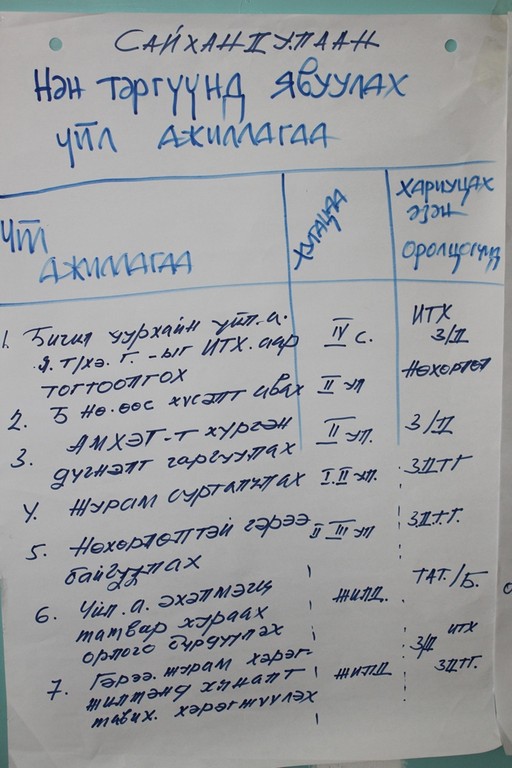 САЙХАНДУЛААН
НЭН ТЭРГҮҮНД ЯВУУЛАХ
ҮЙЛ АЖИЛЛАГАА
ҮЙЛ
АЖИЛЛАГАА
ХУГАЦАА
ХАРИУЦАХ
ЭЗЭН
ОРОЛЦОГЧИД
1. Бичил уурхайн үйл.а.
-ыг ИТХ.аар
тогтоолгох
IV с.
ИТХ
З/Д
2. Б нө.өөс хүсэлт авах
II ул
нөхөрлөл
3. АМХЭГ-т хүргэн
дүгнэлт гаргуулах
II ул.
З/Д
4. Журам сурталчлах
I.II ул.
ЗДТГ
5. Нөхөрлөлтэй гэрээ
байгуулах
II III ул
ЗДТГ.
6. Үйл.а. эхэлмэгц
татвар хураах
орлого бүрдүүлэх
жилд.
ТАТ./Б.
7. Гэрээ. журам хэрэг-
жилтэнд хяналт
тавих. хэрэгжүүлэх
жилд
ИТХ
З/Д
ЗДТГ.